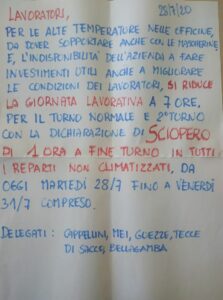 LAVORATORI, 28/7/20
PER LE ALTE TEMPERATURE NELLE OFFICINE,
DA DOVER SOPPORTARE ANCHE CON LE MASCHERINE,
E, L'INDISPONIBILITÀ DELL'AZIENDA A FARE
INVESTIMENTI UTILI ANCHE A MIGLIORARE
LE CONDIZIONI DEI LAVORATORI, SI RIDUCE
LA GIORNATA LAVORATIVA A 7 ORE,
PER IL TURNO NORMALE E 2° TURNO
CON LA DICHIARAZIONE DI SCIOPERO
DI 1 ORA A FINE TURNO IN TUTTI
I REPARTI NON CLIMATIZZATI, DA
OGGI MARTEDÌ 28/7 FINO A VENERDÌ
31/7 COMPRESO.
DELEGATI: CAPPELLINI, MEI, GUEZZE, TECCE
DI SACCO, BELLAGAMBA